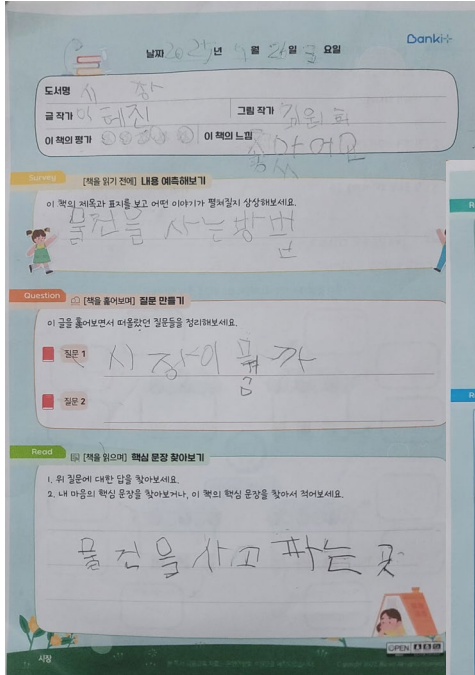 Banki
날짜 2025년 월 일 요일
도서명 시 장
글 작가 이 태진 그림 작가
이 책의 평가 이 책의 느낌
Survey [책을 읽기 전에] 내용 예측해보기
이 책의 제목과 표지를 보고 어떤 이야기가 펼쳐질지 상상해보세요.
물건을 사는 방법
Question [책을 훑어보며] 질문 만들기
이 글을 훑어보면서 떠올랐던 질문들을 정리해보세요.
질문 1 시장이 뭘까
질문 2
Read [책을 읽으며] 핵심 문장 찾아보기
1. 위 질문에 대한 답을 찾아보세요.
2. 내 마음의 핵심 문장을 찾아보거나, 이 책의 핵심 문장을 찾아서 적어보세요.
물건을 사고 파는 곳
시장
OPEN